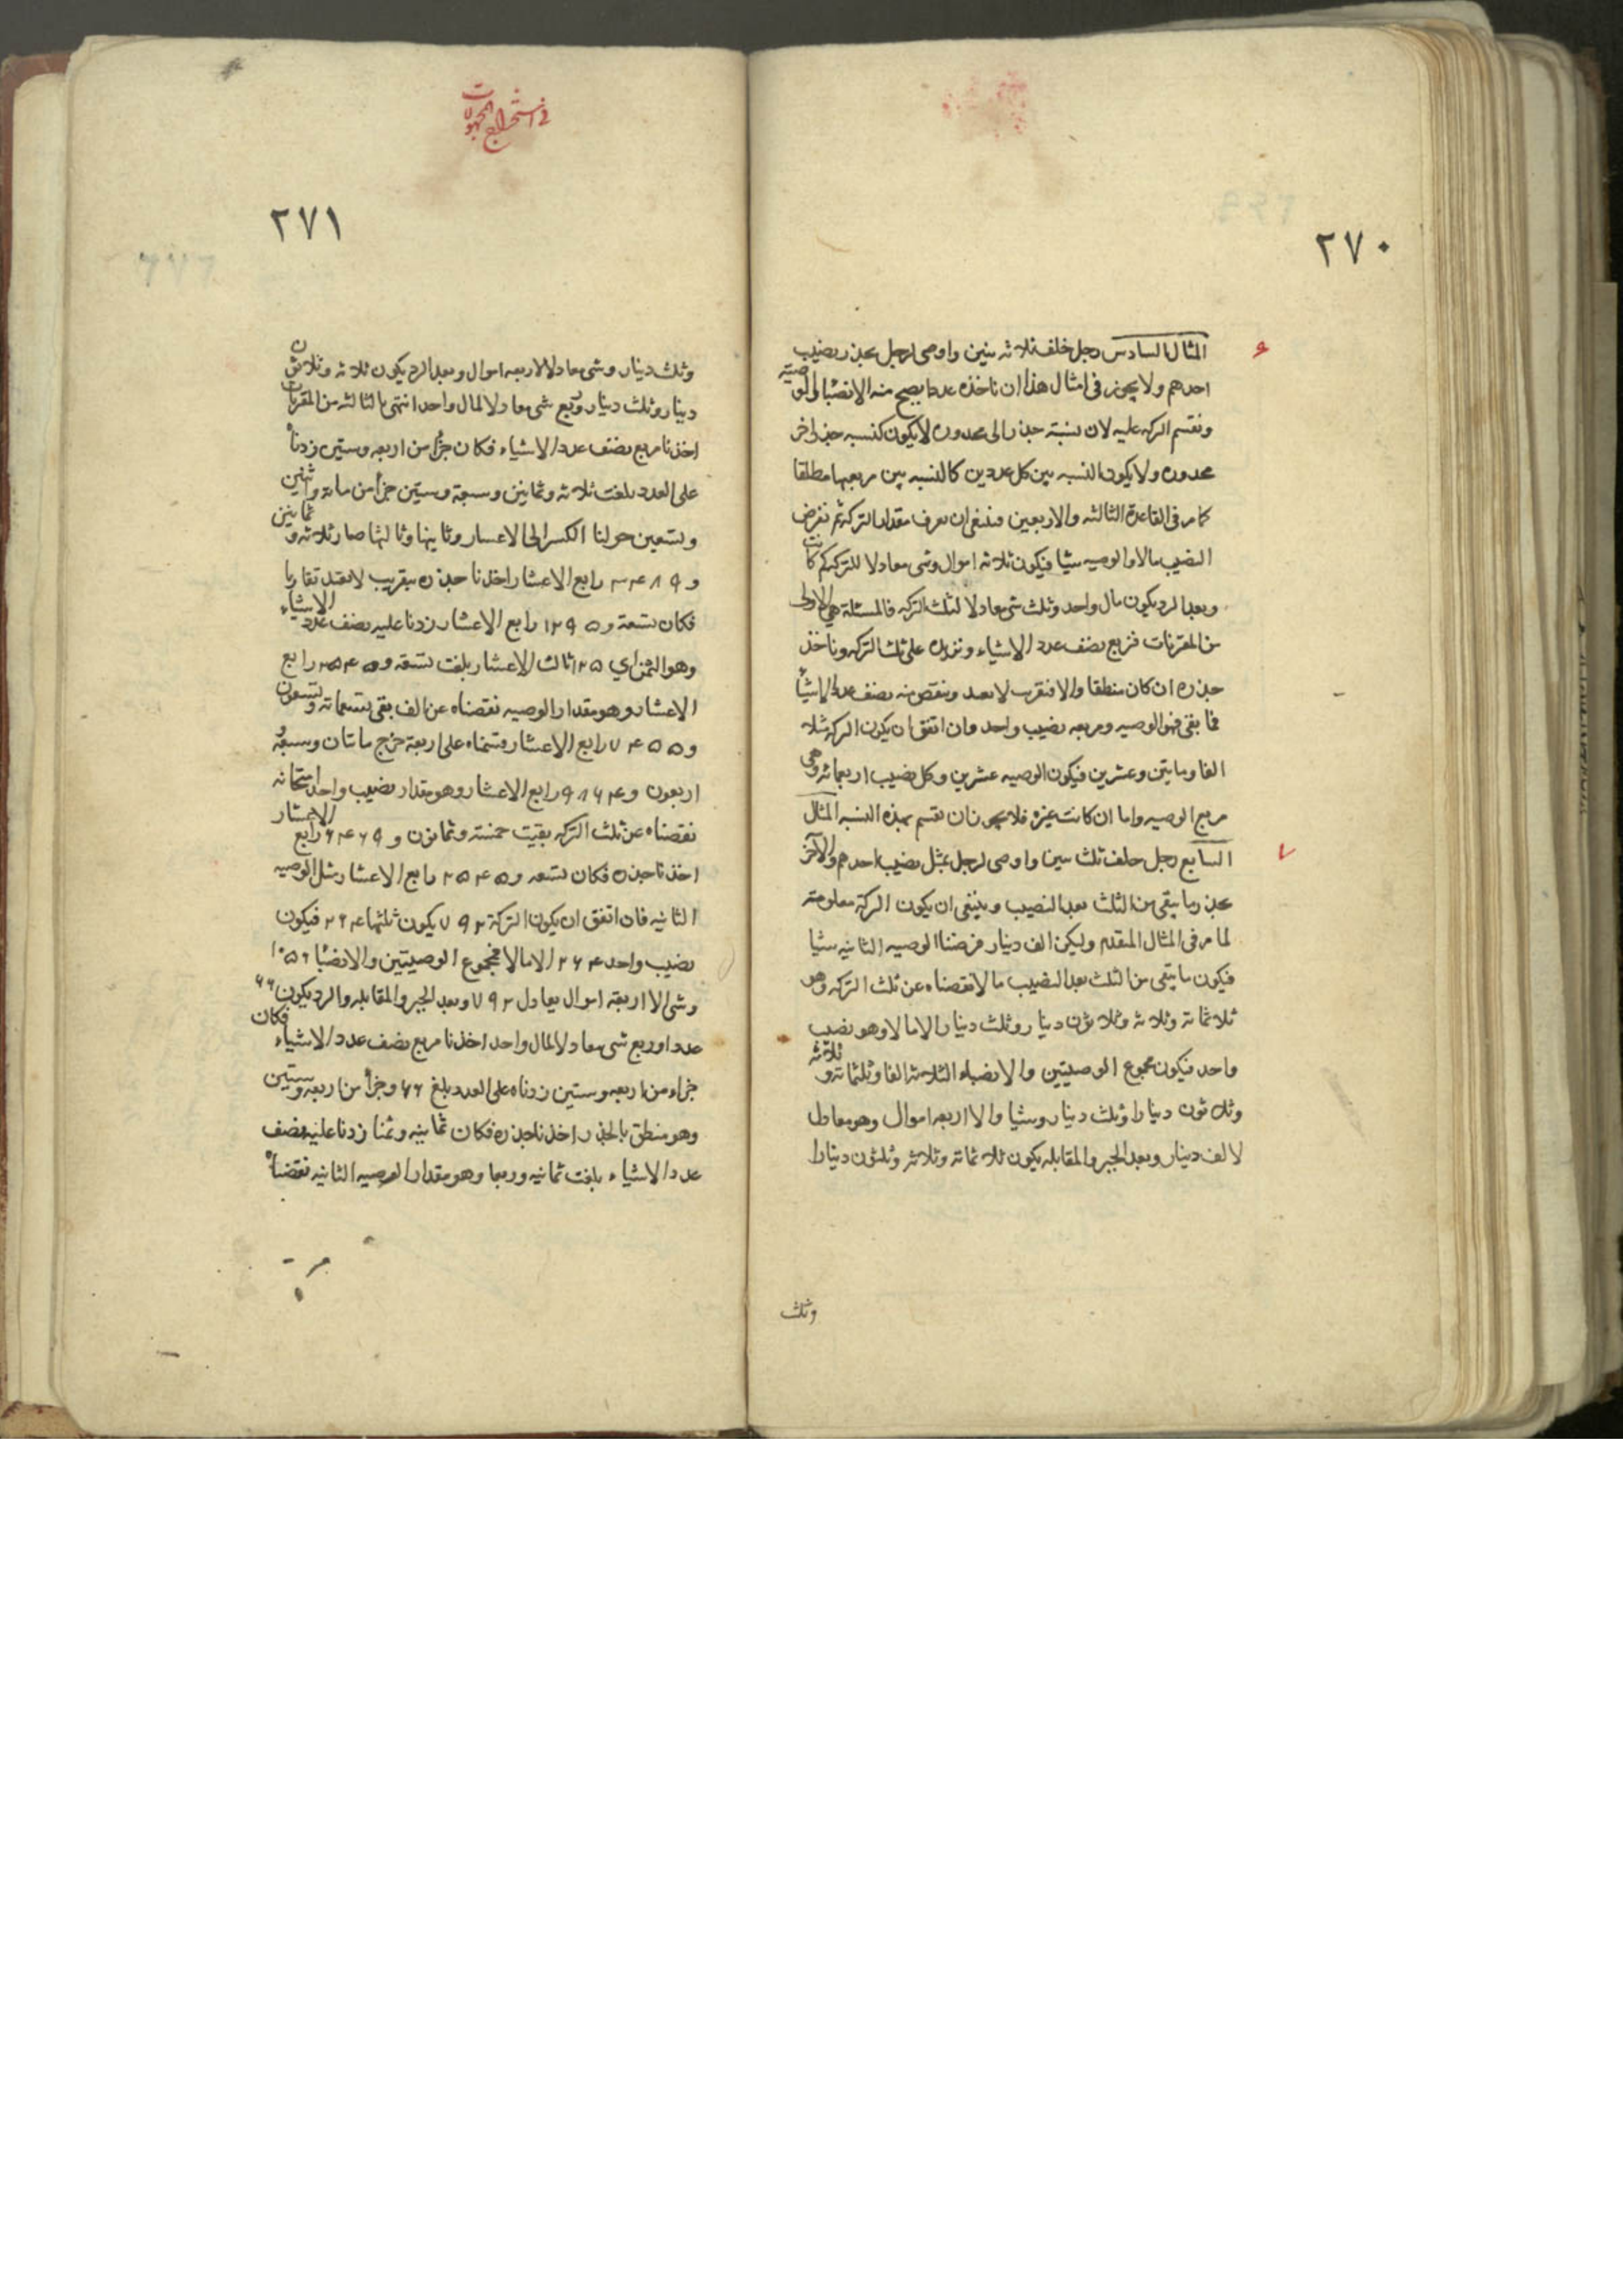 ٢٧٠
المثال السادس رجل خلف ثلاثه بنين واوصى لرجل بجذر نصيب
احدهم ولا يجوز في امثال هذا ان ناخذه عددا يصح منه الانصبا والوصية
ونقسم التركه عليه لان نسبة جذر الى مجذوره لا يكون كنسبه جذر اخر
مجذوره ولا يكون النسبه بين كل عددين كالنسبه بين مربعيهما مطلقا
كما مر في القاعدة الثالثه والاربعين فينبغي ان نعرف مقدار التركه ثم نفرض
النصيب مالا والوصيه شيا فيكون ثلاثه اموال وشى معادلا للتركه كم كانت
وبعد الرد يكون مال واحد وثلث شى معادلا لثلث التركه فالمسئلة هي الاولى
من المقترنات فنربع نصف عدد الاشياء ونزيده على ثلث التركه وناخذ
جذره ان كان منطقا والا فنقرب لابعد وننقص منه نصف عدد الاشيأ
فما بقى فهو الوصيه ومربعه نصيب واحد وان اتفق ان يكون التركه مثلا
الفا ومايتين وعشرين فيكون الوصيه عشرين وكل نصيب اربعمائه وهى
مربع الوصيه واما ان كانت غيره فلا يجوز ان نقسم بهذه النسبه المثال
السابع رجل خلف ثلث بنين واوصى لرجل بمثل نصيب احدهم ولآخر
بجذر ما يبقى من الثلث بعد النصيب وينبغى ان يكون التركة معلومته
لما مر في المثال المتقدم وليكن الف دينار فرضنا الوصيه الثانيه شيا
فيكون ما يبقى من الثلث بعد النصيب مالا نقصناه عن ثلث التركه وهو
ثلاثمائه وثلاثه وثلاثون دينار وثلث دينار الا مالا وهو نصيب
واحد فيكون مجموع الوصيتين والانصباء الثلاثه الفا وثلثمائه وثلاثه
وثلاثون دينارا وثلث دينار وشيا والا اربعه اموال وهو معادل
لالف دينار وبعد الجبر والمقابله يكون ثلاثمائه وثلاثه وثلثون دينارا
وثلث
في استخراج المجهولات
٢٧١
وثلث دينار وشى معادلا لاربعه اموال وبعد الرد يكون ثلاثه وثلاثون
دينار وثلث دينار وربع شى معادلا لمال واحد انتهى بالثالثه من المقترنات
اخذنا مربع نصف عدد الاشياء فكان جزأ من اربعه وستين زدناه
على العدد بلغت ثلاثه وثمانين وسبعة وستين جزأ من مائة واثنين
وتسعين حولنا الكسر الى الاعشار وثانيها وثالثها صار ثلاثه وثمانين
و ٣٤٨٩ رابع الاعشار اخذنا جذره بتقريب لابعد تقاربا
فكان تسعة و ١٢٩٥ رابع الاعشار زدنا عليه نصف عدد الاشياء
وهو الثمن اي ١٢٥ ثالث الاعشار بلغت تسعة و ٢٥٤٥ رابع
الاعشار وهو مقدار الوصيه نقصناه عن الف بقى تسعمائه وتسعون
و ٧٤٥٥ رابع الاعشار قسمناه على اربعة خرج مائتان وسبعة
اربعون و ٦٨٦٤ رابع الاعشار وهو مقدار نصيب واحد
نقصناه عن ثلث التركه بقيت خمسة وثمانون و ٦٤٦٩ رابع الاعشار
اخذنا جذره فكان تسعه و ٢٥٤٥ رابع الاعشار مثل الوصيه
الثانيه فان اتفق ان يكون التركة ٧٩٢ يكون ثلثها ٢٦٤ فيكون
نصيب واحد ٢٦٤ الا مالا فمجموع الوصيتين والانصبا ١٠٥٦
وشى الا اربعة اموال يعادل ٧٩٢ وبعد الجبر والمقابله والرد يكون ٦٦
عددا وربع شى معادلا لمال واحد اخذنا مربع نصف عدد الاشياء فكان
جزاء من اربعه وستين زدناه على العدد بلغ ٦٦ وجزأ من اربعه وستين
وهو منطق بالجذر اخذنا جذره فكان ثمانيه وثمنا زدنا عليه نصف
عدد الاشياء بلغت ثمانيه وربعا وهو مقدار الوصيه الثانيه نقصناه